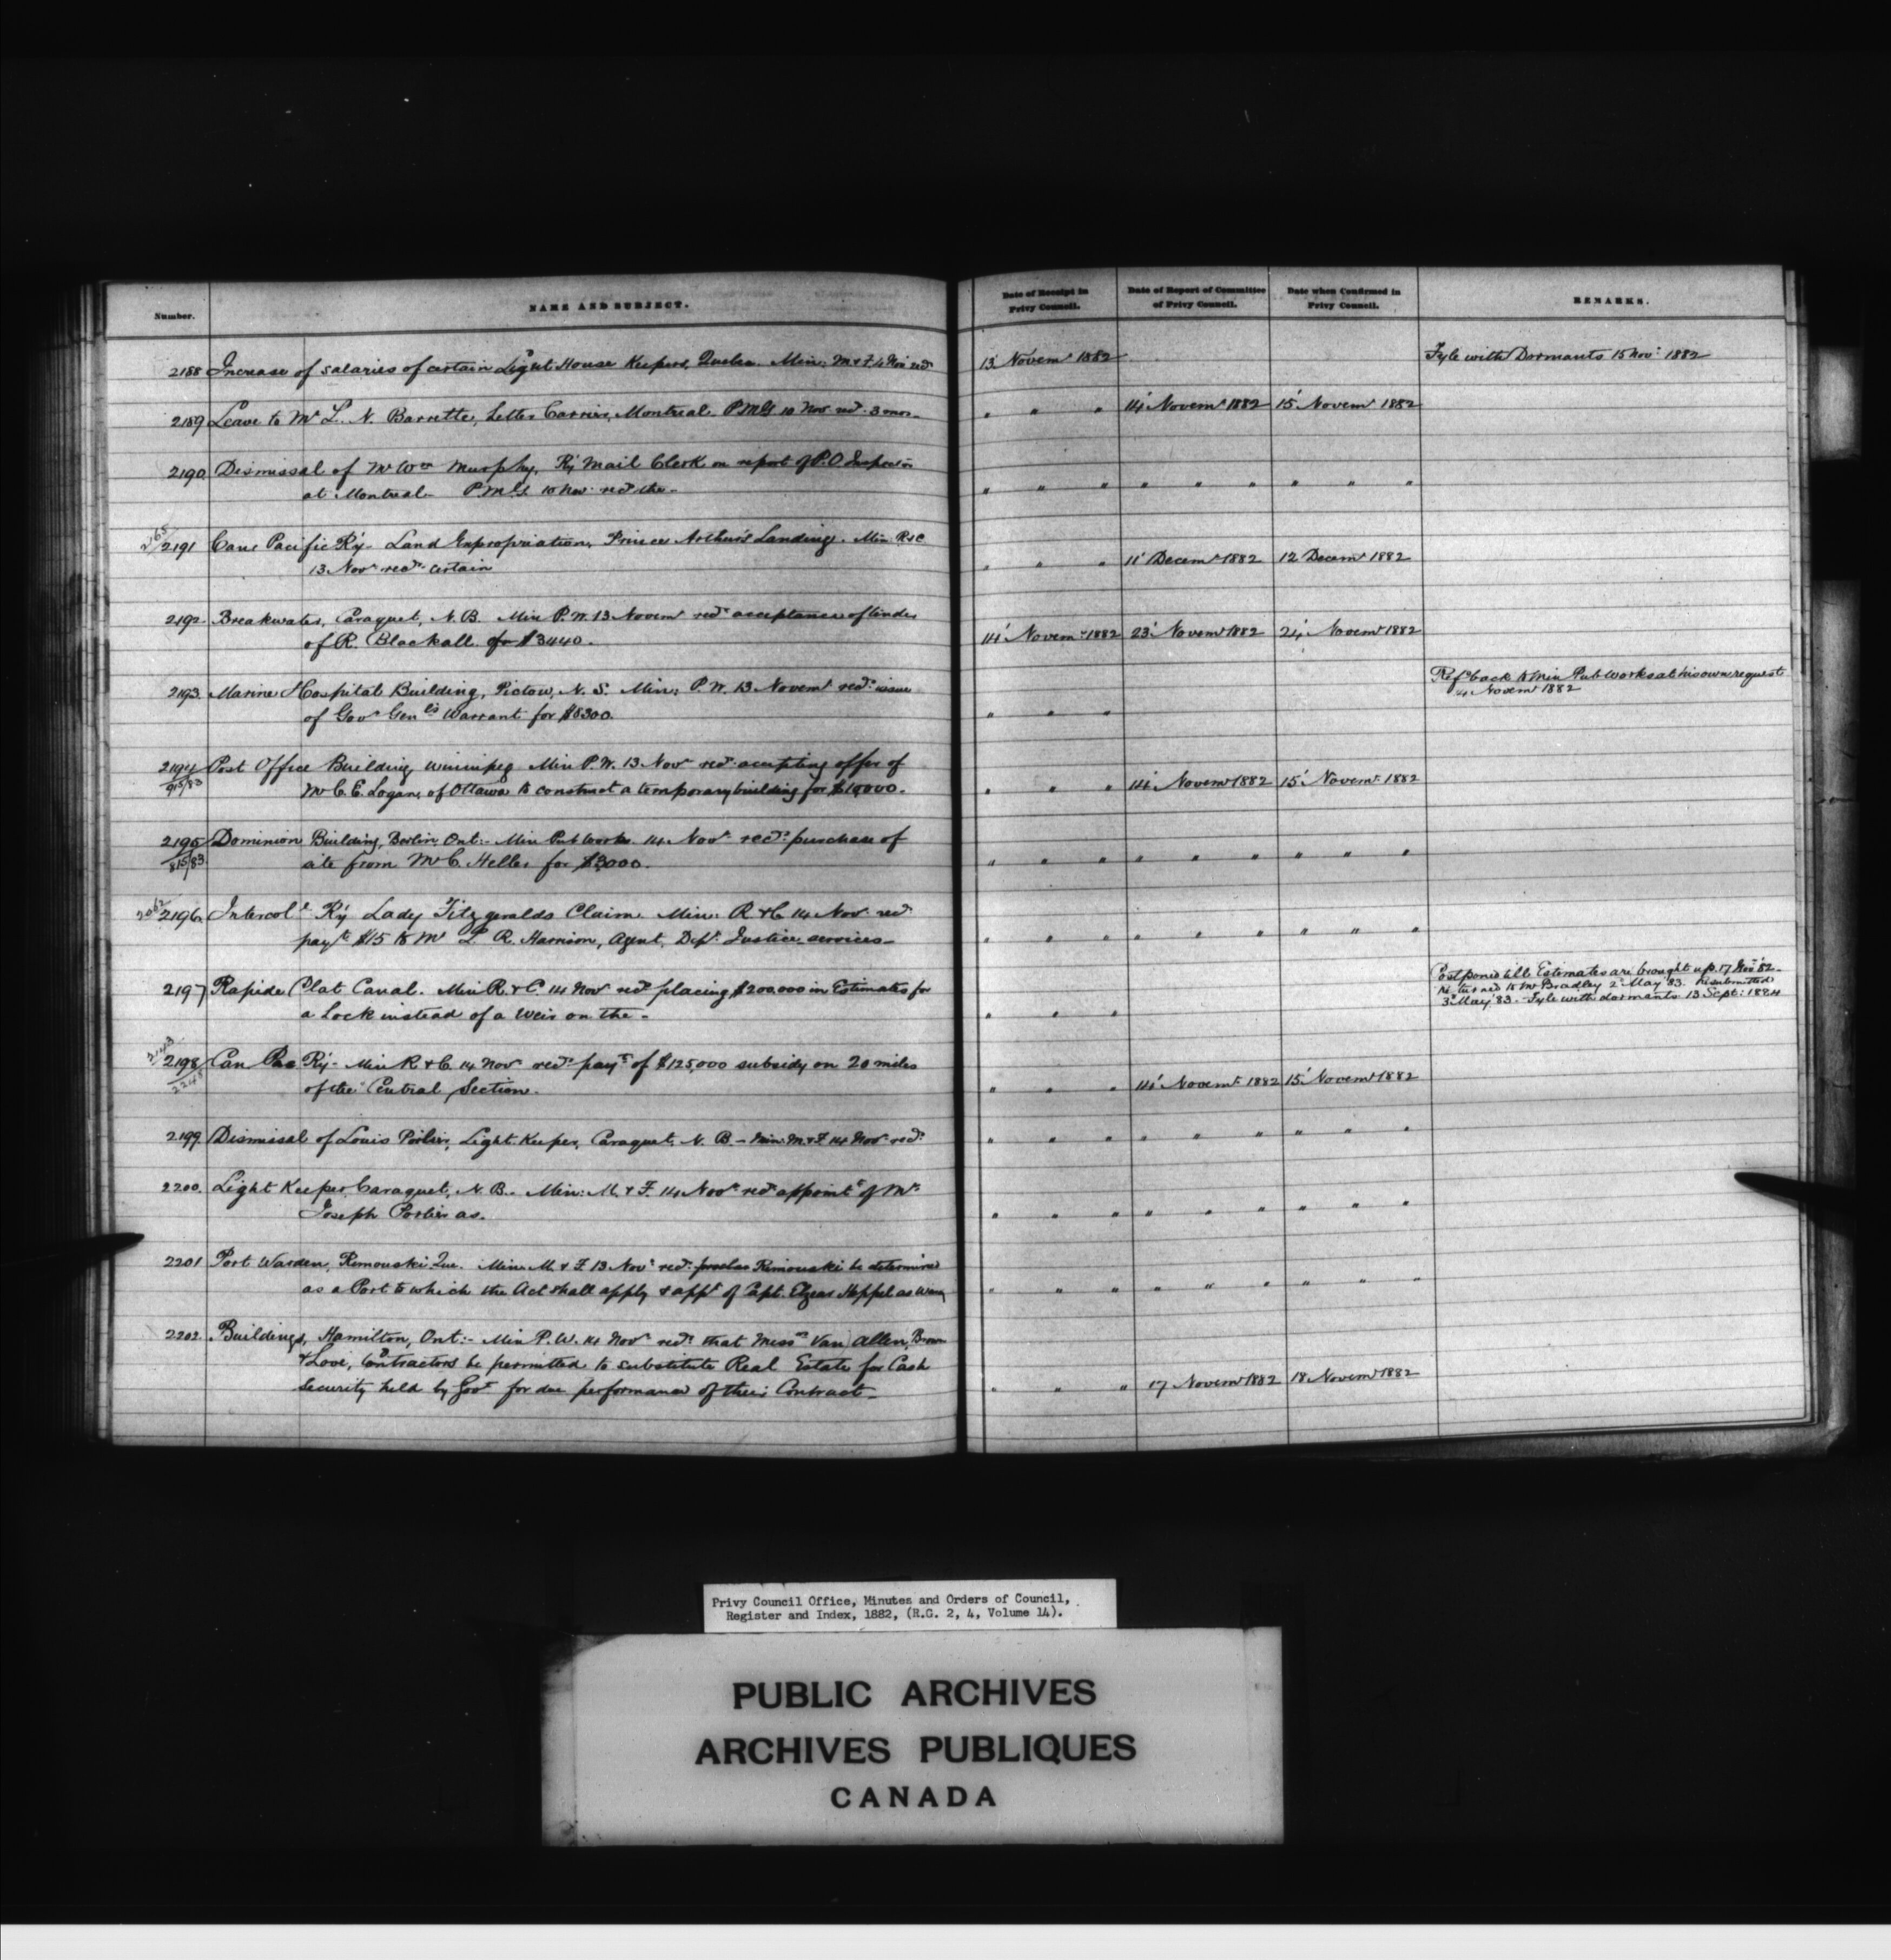 Number. NAME AND SUBJECT. Date of Receipt in Privy Council. Date of Report of Committee of Privy Council. Date when Confirmed in Privy Council. REMARKS.
2188 Increase of salaries of certain Light House Keepers, Quebec. Min: M & F. 4 Nov recd 13' Novemr 1882 Fyle with Dormants 15 Novr 1882
2189 Leave to Mr L. N. Barrette, Letter Carrier, Montreal PMG 10 Nov recd 3 mos - " " " 14' Novemr 1882 15' Novemr 1882
2190 Dismissal of Mr Wm Murphy, Ry Mail Clerk on report of P.O Inspector
at Montreal - P.M.G. 10 Nov recd the - " " " " " " " " "
2165 2191 Can: Pacific Ry - Land Expropriation, Prince Arthur's Landing. Min R & C
13 Novr recd certain " " " 11' Decemr 1882 12 Decemr 1882
2192 Breakwater, Caraquet, N.B. Min P.W. 13 Novemr recd acceptance of tender
of R. Blackall for $3440. 14' Novemr 1882 23' Novemr 1882 24' Novemr 1882
2193. Marine Hospital Building, Pictou, N.S. Min: P.W. 13 Novemr recd issue
of Govr Genl's Warrant for $8300. " " " Refd back to Min Pub Works at his own request
14 Novemr 1882
2194 Post Office Building Winnipeg Min P.W. 13 Novr recd accepting offer of
915/83 Mr C. E. Logan, of Ottawa to construct a temporary building for $10,000. " " " 14' Novemr 1882 15' Novemr 1882
2195 Dominion Building, Berlin, Ont:- Min Pub Works 14 Novr recd purchase of
815/83 site from Mr C. Heller for $3,000. " " " " " " " " "
2062 2196 Intercoll Ry Lady Fitzgeralds Claim. Min: R & C 14 Nov recd
payt $15 to Mr L. R. Harrison, Agent, Dept Justice services - " " " " " " " " "
2197 Rapide Plat Canal. Min R. & C. 14 Nov recd placing $200,000 in Estimates for
a Lock instead of a Weir on the - " " " Postponed till Estimates are brought up. 17 Nov '82 -
Returned to Mr Bradley 2 May '83. Resubmitted
3 May '83 - Fyle with dormants 13 Sept: 1884
2143 2198 Can Pac Ry - Min R & C 14 Novr recd payt of $125,000 subsidy on 20 miles
of the Central Section. " " " 14' Novemr 1882 15' Novemr 1882
2199 Dismissal of Louis Poirier, Light Keeper, Caraquet, N.B. - Min: M & F 14 Novr recd " " " " " " " " "
2200. Light Keeper, Caraquet, N.B. - Min: M. & F. 14 Novr recd appointt of Mr
Joseph Poirier as. " " " " " " " " "
2201 Port Warden, Rimouski Que. Min M. & F 13 Novr recd Rimouski be determined
as a Port to which the Act shall apply & appt of Capt. Elzear Heppel as " " " " " " " " "
2202 Buildings, Hamilton, Ont:- Min P.W. 14 Novr recd that Messrs Van Allen, Brown
& Love, Contractors be permitted to substitute Real Estate for Cash
Security held by Govt for due performance of their Contract - " " " 17 Novemr 1882 18 Novemr 1882
Privy Council Office, Minutes and Orders of Council,
Register and Index, 1882, (R.G. 2, 4, Volume 14).
PUBLIC ARCHIVES
ARCHIVES PUBLIQUES
CANADA